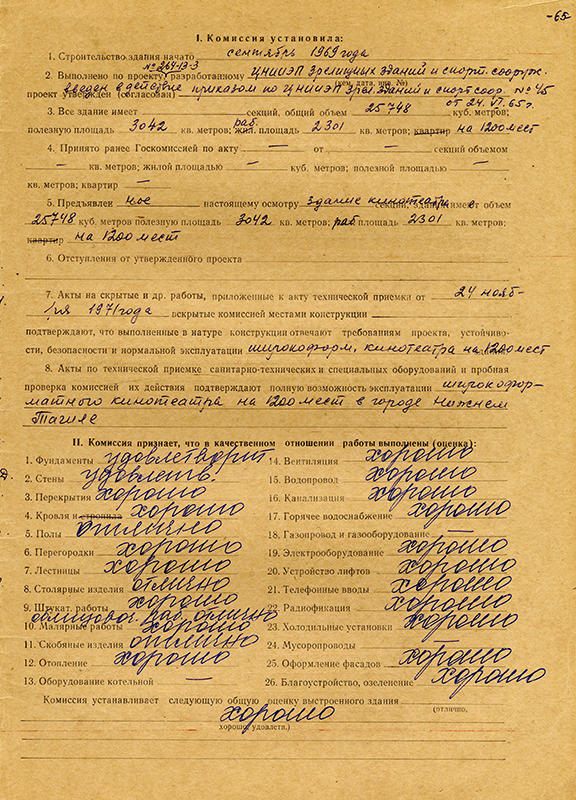 -65-
I. Комиссия установила:
1. Строительство здания начато сентябрь 1969 года
№ 264-13-3
2. Выполнено по проекту, разработанному ЦНИИЭП Зрелищных зданий и спорт. сооруж.
(кем, дата, инв. №)
введен в действие приказом по ЦНИИЭП зрел. зданий и спорт соор. № 45
проект утвержден (согласован) от 24.VI.65г.
3. Все здание имеет секций, общий объем 25748 куб. метров;
полезную площадь 3042 кв. метров; раб. жил. площадь 2301 кв. метров; квартир на 1200 мест
4. Принято ранее Госкомиссией по акту — от — секций объемом
— кв. метров; жилой площадью — куб. метров; полезной площадью —
кв. метров; квартир —
5. Предъявлен ное настоящему осмотру здание кинотеатра секций, здание имеет объем
25748 куб. метров полезную площадь 3042 кв. метров; раб площадь 2301 кв. метров;
квартир на 1200 мест
6. Отступления от утвержденного проекта
7. Акты на скрытые и др. работы, приложенные к акту технической приемки от 24 нояб-
ря 1971 года вскрытые комиссией местами конструкции
подтверждают, что выполненные в натуре конструкции отвечают требованиям проекта, устойчиво-
сти, безопасности и нормальной эксплуатации широкоформ. кинотеатра на 1200 мест
8. Акты по технической приемке санитарно-технических и специальных оборудований и пробная
проверка комиссией их действия подтверждают полную возможность эксплуатации широкофор-
матного кинотеатра на 1200 мест в городе Нижнем
Тагиле
II. Комиссия признает, что в качественном отношении работы выполнены (оценка):
1. Фундаменты удовлетворит
2. Стены удовлетв.
3. Перекрытия хорошо
4. Кровля и стропила хорошо
5. Полы отлично
6. Перегородки хорошо
7. Лестницы хорошо
8. Столярные изделия отлично
9. Штукат. работы хорошо
облицовоч. раб. отлично
10. Малярные работы хорошо
11. Скобяные изделия отлично
12. Отопление хорошо
13. Оборудование котельной —
14. Вентиляция хорошо
15. Водопровод хорошо
16. Канализация хорошо
17. Горячее водоснабжение хорошо
18. Газопровод и газооборудование —
19. Электрооборудование хорошо
20. Устройство лифтов хорошо
21. Телефонные вводы хорошо
22. Радиофикация хорошо
23. Холодильные установки хорошо
24. Мусоропроводы
25. Оформление фасадов хорошо
26. Благоустройство, озеленение хорошо
Комиссия устанавливает следующую общую оценку выстроенного здания
(отлично,
хорошо
хорошо, удовлетв.)